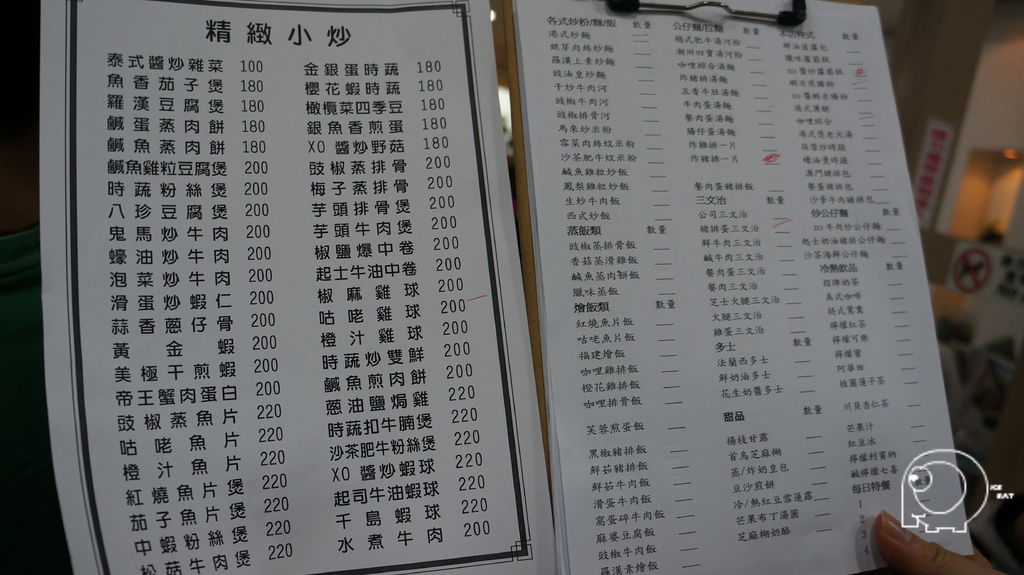 精緻小炒
泰式醬炒雜菜 100
魚香茄子煲 180
羅漢豆腐煲 180
鹹蛋蒸肉餅 180
鹹魚蒸肉餅 180
鹹魚雞粒豆腐煲 200
時蔬粉絲煲 200
八珍豆腐煲 200
鬼馬炒牛肉 200
蠔油炒牛肉 200
泡菜炒牛肉 200
滑蛋炒蝦仁 200
蒜香蔥仔骨 200
黃金蝦 200
美極干煎蝦 200
帝王蟹肉蛋白 200
豉椒蒸魚片 220
咕咾魚片 220
橙汁魚片 220
紅燒魚片煲 220
茄子魚片煲 220
中蝦粉絲煲 220
松菇牛肉煲 220
金銀蛋時蔬 180
櫻花蝦時蔬 180
橄欖菜四季豆 180
銀魚香煎蛋 180
XO醬炒野菇 180
豉椒蒸排骨 200
梅子蒸排骨 200
芋頭排骨煲 200
芋頭牛肉煲 200
椒鹽爆中卷 200
起士牛油中卷 200
椒麻雞球 200
咕咾雞球 200
橙汁雞球 200
時蔬炒雙鮮 200
鹹魚煎肉餅 200
蔥油鹽焗雞 220
時蔬扣牛腩煲 220
沙茶肥牛粉絲煲 220
XO醬炒蝦球 220
起司牛油蝦球 220
千島蝦球 220
水煮牛肉 200
各式炒粉/麵/飯 數量
港式炒麵
銀芽肉絲炒麵
羅漢上素炒麵
豉油皇炒麵
干炒牛肉河
豉椒牛肉河
豉椒排骨河
馬來炒米粉
雪菜肉絲炆米粉
沙茶肥牛炆米粉
鹹魚雞粒炒飯
鳳梨雞粒炒飯
生炒牛肉飯
西式炒飯
蒸飯類 數量
豉椒蒸排骨飯
香菇蒸滑雞飯
鹹魚蒸肉餅飯
臘味蒸飯
燴飯類 數量
紅燒魚片飯
咕咾魚片飯
福建燴飯
咖哩雞排飯
橙花雞排飯
咖哩排骨飯
芙蓉煎蛋飯
黑椒豬排飯
鮮茄豬排飯
鮮茄牛肉飯
滑蛋牛肉飯
窩蛋碎牛肉飯
麻婆豆腐飯
豉椒牛肉飯
羅漢素燴飯
公仔麵/拉麵 數量
越式肥牛湯河粉
潮州四寶湯河粉
咖哩綜合湯麵
炸豬排湯麵
五香牛肚湯麵
牛肉蛋湯麵
餐肉蛋湯麵
腸仔蛋湯麵
炸雞排一片
炸豬排一片
餐肉蛋豬排飯
三文治 數量
公司三文治
豬排蛋三文治
鮮牛肉三文治
鹹牛肉三文治
餐肉蛋三文治
餐肉三文治
芝士火腿三文治
火腿三文治
雞蛋三文治
多士 數量
法蘭西多士
鮮奶油多士
花生奶醬多士
甜品 數量
楊枝甘露
首烏芝麻糊
蒸/炸奶皇包
豆沙煎餅
冷/熱紅豆雪蓮露
芒果布丁湯圓
芝麻糊奶酪
本店特式 數量
鮮油菠蘿包
臘味蘿蔔糕
XO醬炒蘿蔔糕
蝦米煎腸粉
XO醬蝦米腸粉
港式薄餅
咖哩綜合
港式煲老火湯
蒜蓉炒時蔬
蠔油燙時蔬
澳門豬排包
餐蛋豬排包
沙爹牛肉豬排包
炒公仔麵 數量
XO牛肉炒公仔麵
起士奶油豬排公仔麵
沙茶海鮮公仔麵
冷熱飲品 數量
招牌奶茶
美式咖啡
特式鴛鴦
檸檬紅茶
檸檬可樂
檸檬蜜
阿華田
桂圓蓮子茶
川貝杏仁茶
芒果汁
紅豆冰
檸檬利賓納
鹹檸檬七喜
每日特餐
1
2
3
4
ICE
EAT